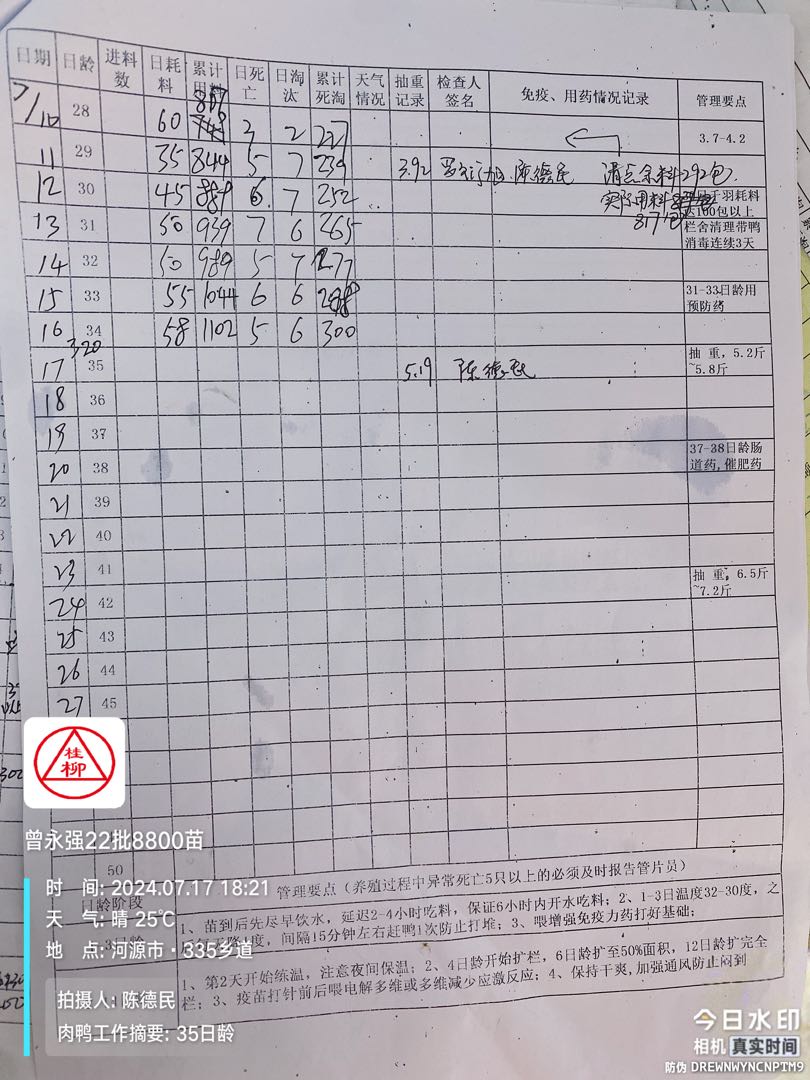 日期 日龄 进料数 日耗料 累计用料 日死亡 日淘汰 累计死淘 天气情况 抽重记录 检查人签名 免疫、用药情况记录 管理要点
7/10 28 60 2 227 3.7-4.2
11 29 35 844 5 7 239 3.92 陈德民 清点余料292包.
12 30 45 889 6 7 252 实际用料 817包 日干羽耗料达100包以上
13 31 50 939 7 6 265 栏舍清理带鸭消毒连续3天
14 32 50 989 5 7 277
15 33 55 1044 6 6 288 31-33日龄用预防药
16 34 58 1102 5 6 300
320
17 35 5.19 陈德民 抽重，5.2斤~5.8斤
18 36
19 37
20 38 37-38日龄肠道药,催肥药
21 39
22 40
23 41 抽重，6.5斤~7.2斤
24 42
25 43
26 44
27 45
桂柳
曾永强22批8800苗
50
日龄阶段 管理要点（养殖过程中异常死亡5只以上的必须及时报告管片员）
1、苗到后先尽早饮水，延迟2-4小时吃料，保证6小时内开水吃料；2、1-3日温度32-30度，之
度，间隔15分钟左右赶鸭1次防止打堆；3、喂增强免疫力药打好基础；
1、第2天开始练温，注意夜间保温；2、4日龄开始扩栏，6日龄扩至50%面积，12日龄扩完全
栏；3、疫苗打针前后喂电解多维或多维减少应激反应；4、保持干爽,加强通风防止闷到
时 间: 2024.07.17 18:21
天 气: 晴 25℃
地 点: 河源市·335乡道
拍摄人: 陈德民
肉鸭工作摘要: 35日龄
今日水印
相机 真实时间
防伪 DREWNWYNCNPTM9